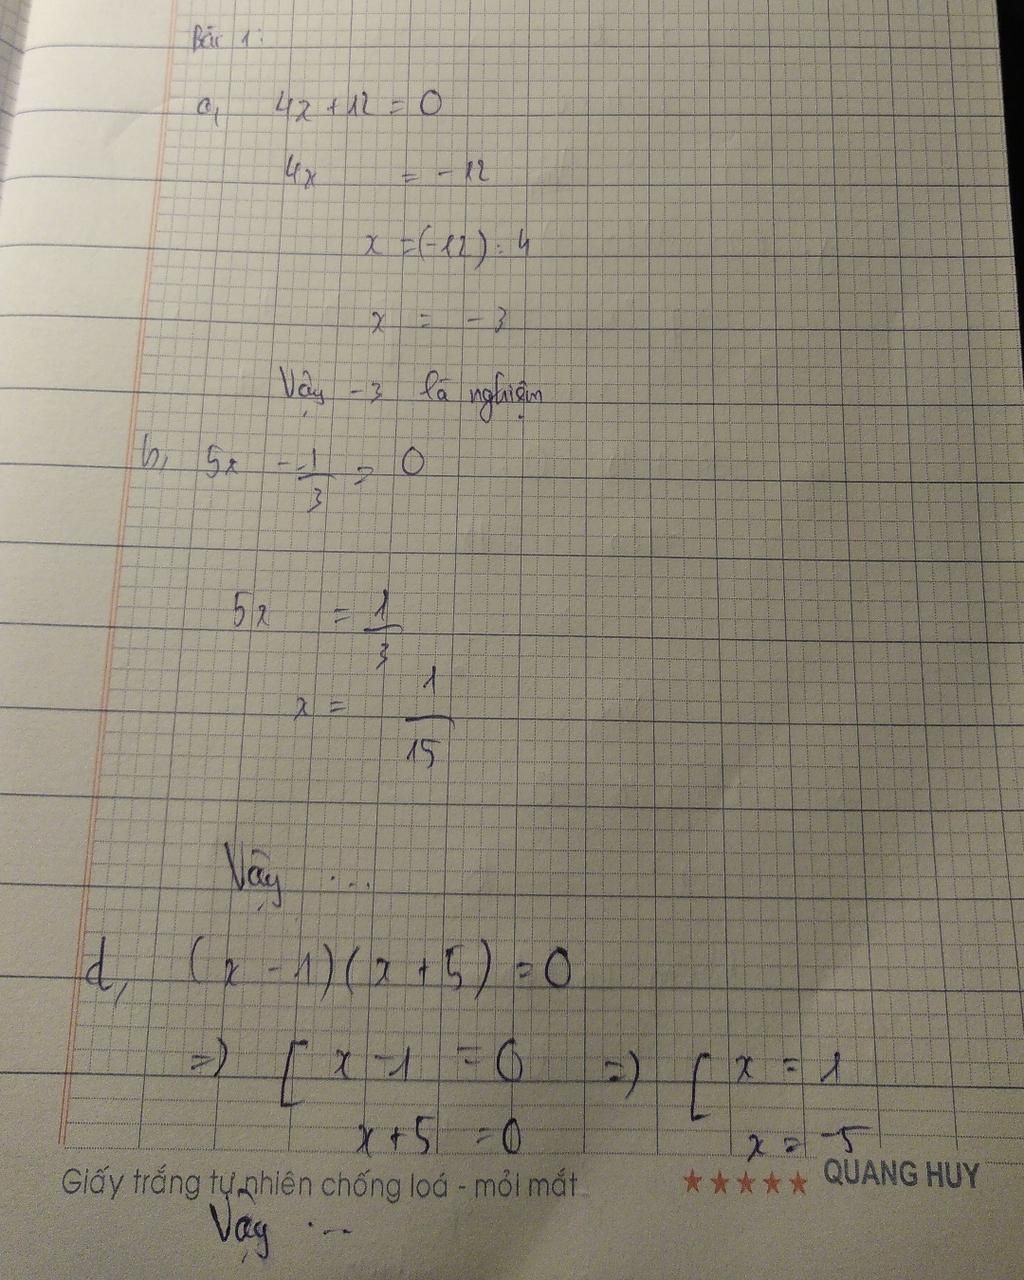 Bài 1:
a, 4x + 12 = 0
4x = -12
x = (-12) : 4
x = -3
Vậy -3 là nghiệm
b, 5x - 1/3 = 0
5x = 1/3
x = 1/15
Vậy ...
d, (x - 1)(x + 5) = 0
=> [ x - 1 = 0 => [ x = 1
x + 5 = 0 x = -5
Giấy trắng tự nhiên chống loá - mỏi mắt ★★★★★ QUANG HUY
Vậy ...